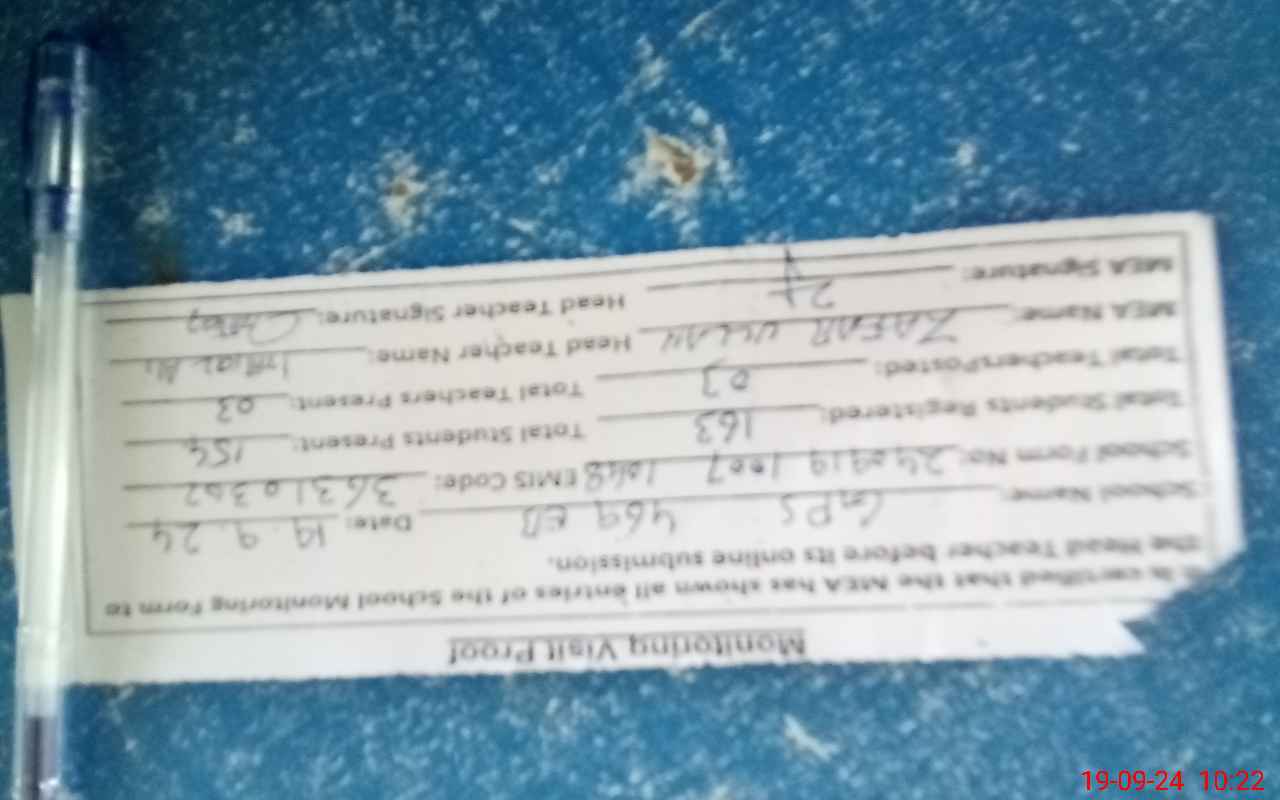 Monitoring Visit Proof
It is certified that the MEA has shown all entries of the School Monitoring Form to
the Head Teacher before its online submission.
School Name: GPS 469 EB Date: 19.9.24
School Form No: 240919 1007 1048 EMIS Code: 36310302
Total Students Registered: 163 Total Students Present: 154
Total Teachers Posted: 03 Total Teachers Present: 03
MEA Name: ZAFAR ULLAH Head Teacher Name: Imtiaz Ali
MEA Signature: Head Teacher Signature:
19-09-24 10:22